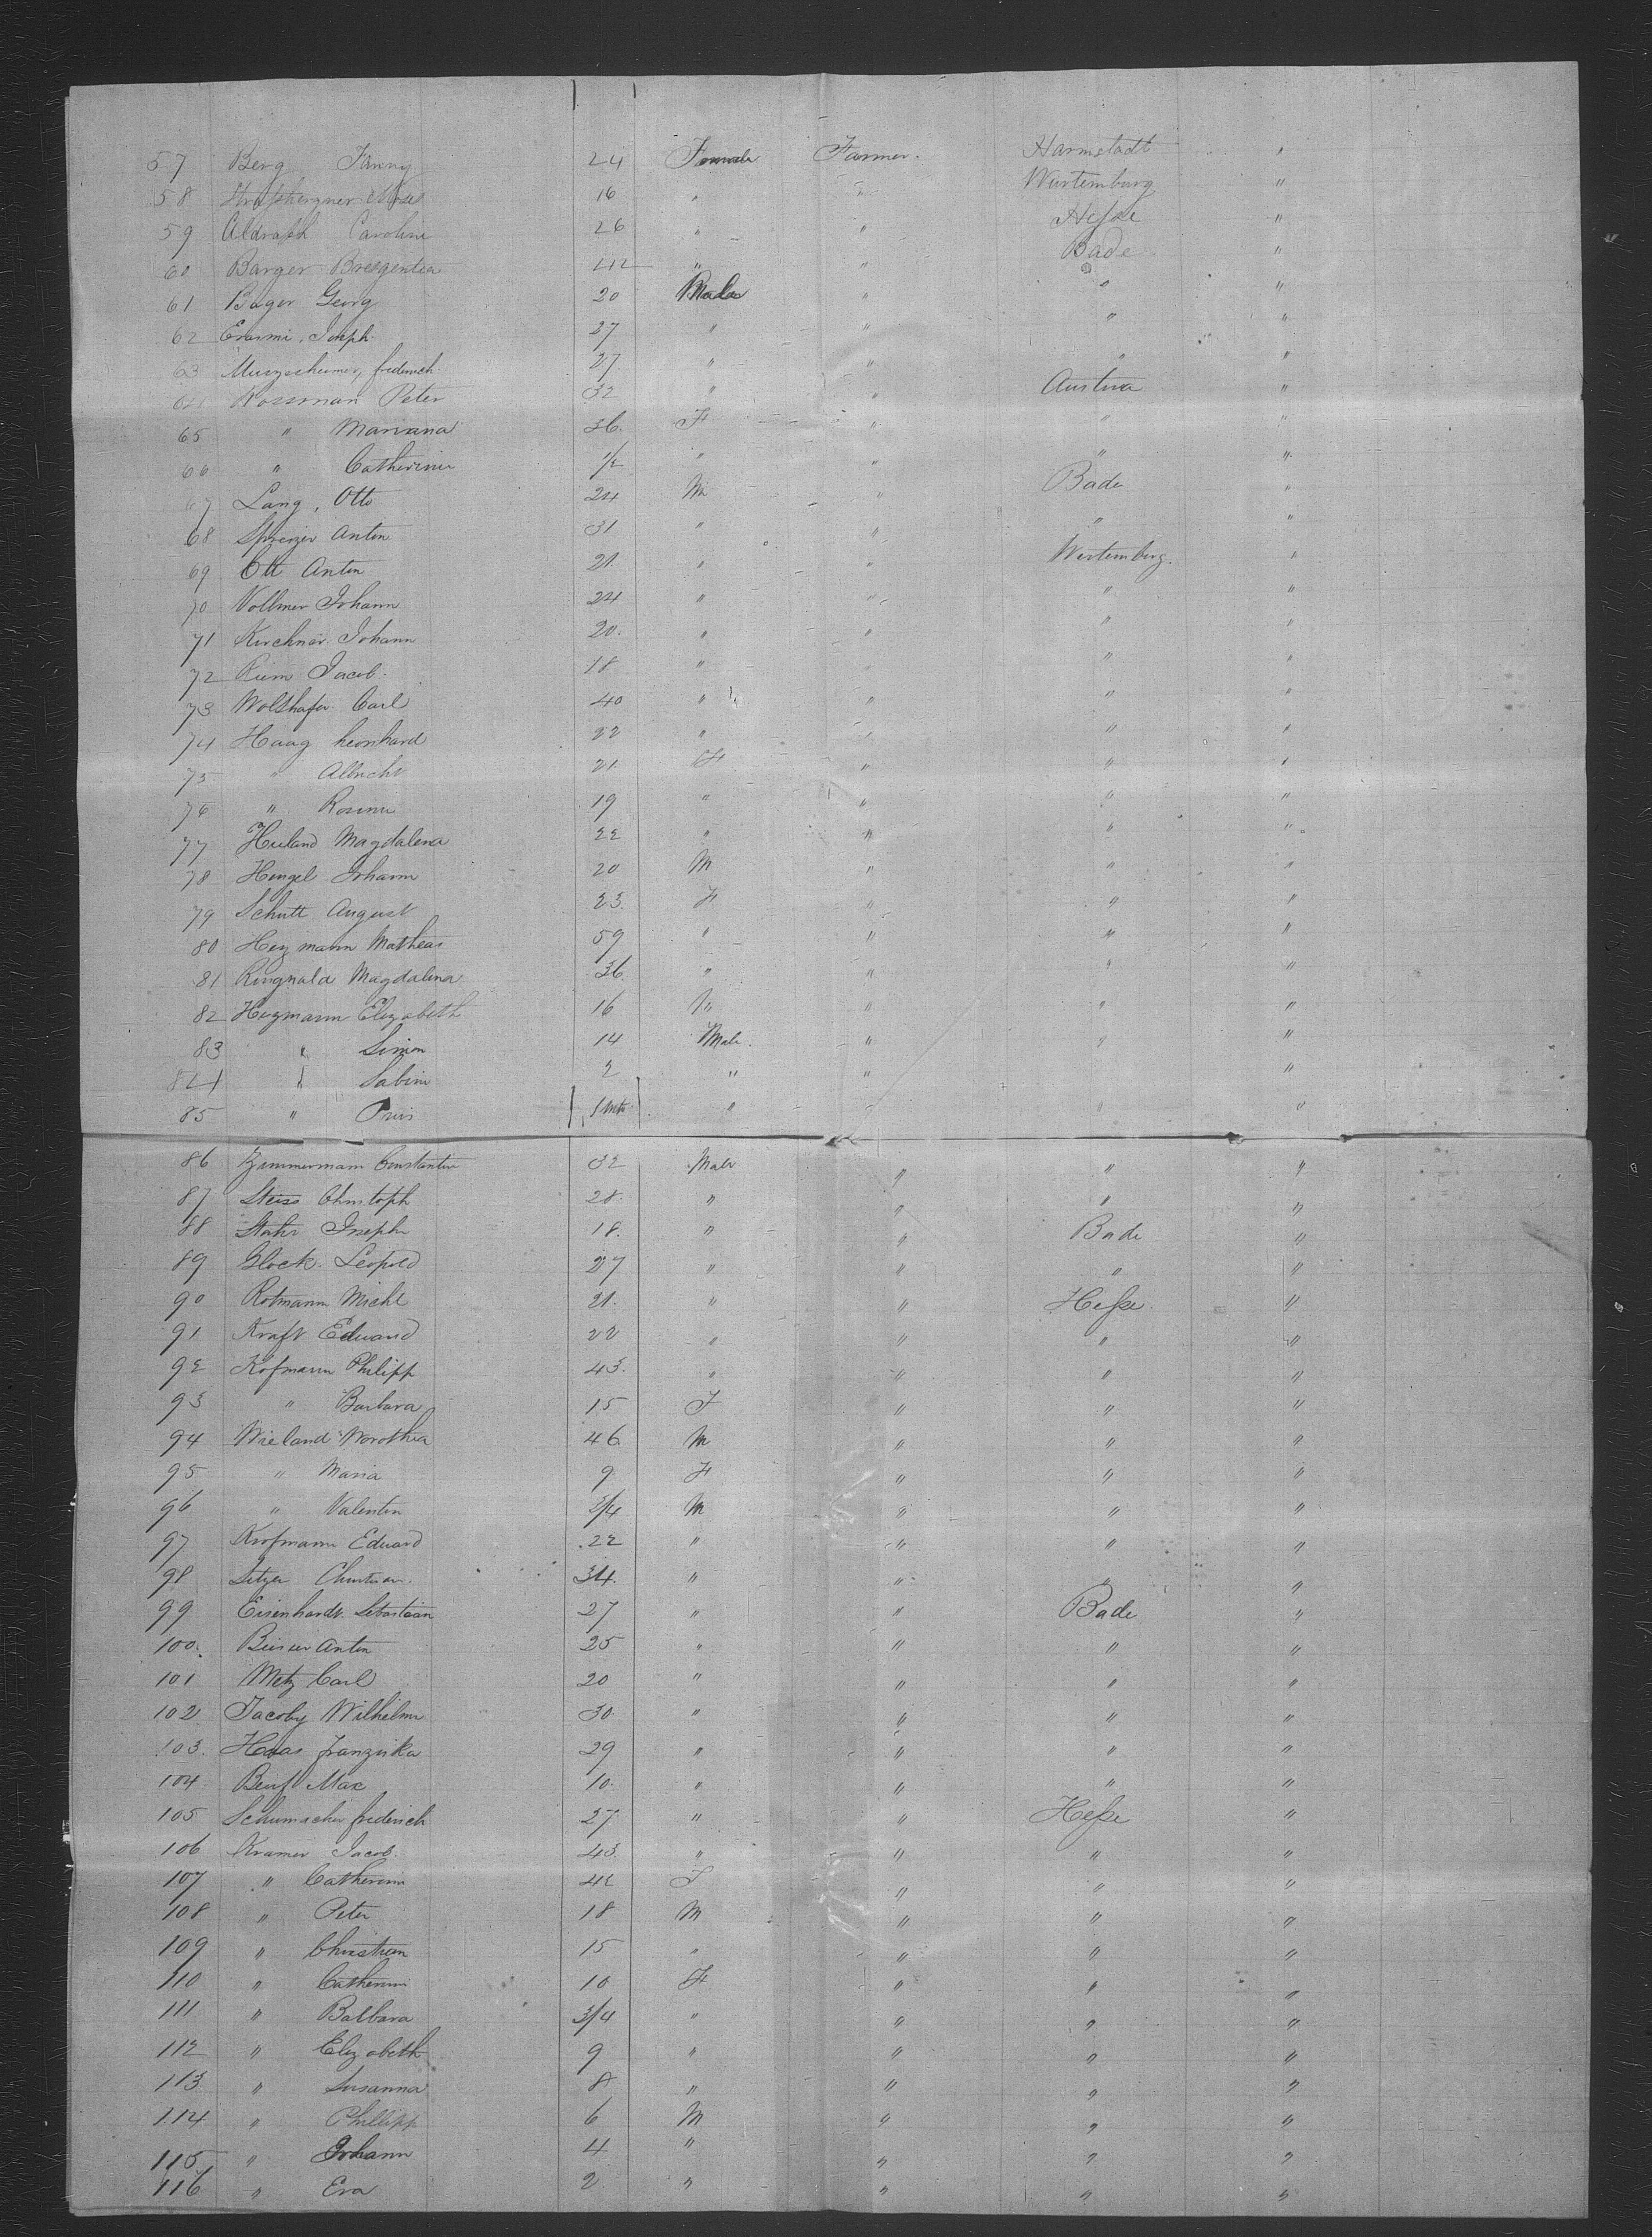 57 Berg Fanny 24 Female Farmer. Harmstadt "
58 16 " " Wurtemburg "
59 Caroline 26 " " Hesse "
60 Barger 42 " " Bade "
61 Bager Georg 20 Male " " "
62 Erasmi, Joseph 27 " " " "
63 frederich 27 " " " "
64 Peter 32 " " Austria "
65 " Mariana 36. F " " "
66 " Catherine 1/2 " " " "
67 Lang, Otto 24 M " Bade "
68 Anton 31 " " " "
69 Ott Anton 21. " " Wurtemburg. "
70 Vollmer Johann 24 " " " "
71 Kirchner Johann 20. " " " "
72 Jacob. 18 " " " "
73 Carl 40 " " " "
74 Haag Leonhard 22 " " " "
75 " Albricht 21 F " " "
76 " Rosine 19 " " " "
77 Magdalena 22 " " " "
78 Hengel Johann 20 M " " "
79 Schutt August 23. F " " "
80 Hegmann Matheas 59 " " " "
81 Magdalena 36. " " " "
82 Hegmann Elizabeth 16 " " "
83 " Simon 14 Male. " " "
84 " Sabine 2 " " "
85 " " " " "
86 Zimmermann Constantin 32 Male " " "
87 Christoph 28. " " " "
88 Joseph 18. " " Bade "
89 Glock. Leopold 27 " " " "
90 Rotmann Michl 21. " " Hesse "
91 Kraft Edward 22 " " " "
92 Kofmann Philipp 43. " " " "
93 " Barbara 15 F " " "
94 Wieland Dorothea 46 M " " "
95 " Maria 9 F " " "
96 " Valentin 3/4 M " " "
97 Eduard 22 " " " "
98 Christian. 34. " " " "
99 Eisenhardt Sebastian 27 " " Bade "
100. Anton 25 " " " "
101 Metz Carl 20 " " " "
102 Jacoby Wilhelm 30. " " " "
103. Haas franziska 29 " " " "
104. Max 10. " " " "
105 Schumacher frederich 27 " " Hesse "
106 Kramer Jacob. 43. " " " "
107 " Catherine 42 F " " "
108 " Peter 18 M " " "
109 " Christian 15 " " " "
110 " Catherine 10 F " " "
111 " Balbara 3/4 " " " "
112 " Elizabeth 9 " " " "
113 " Susanna 8 " " " "
114 " Philipp 6 M " " "
115. " Johann 4 " " " "
116 " Eva 2 " " " "